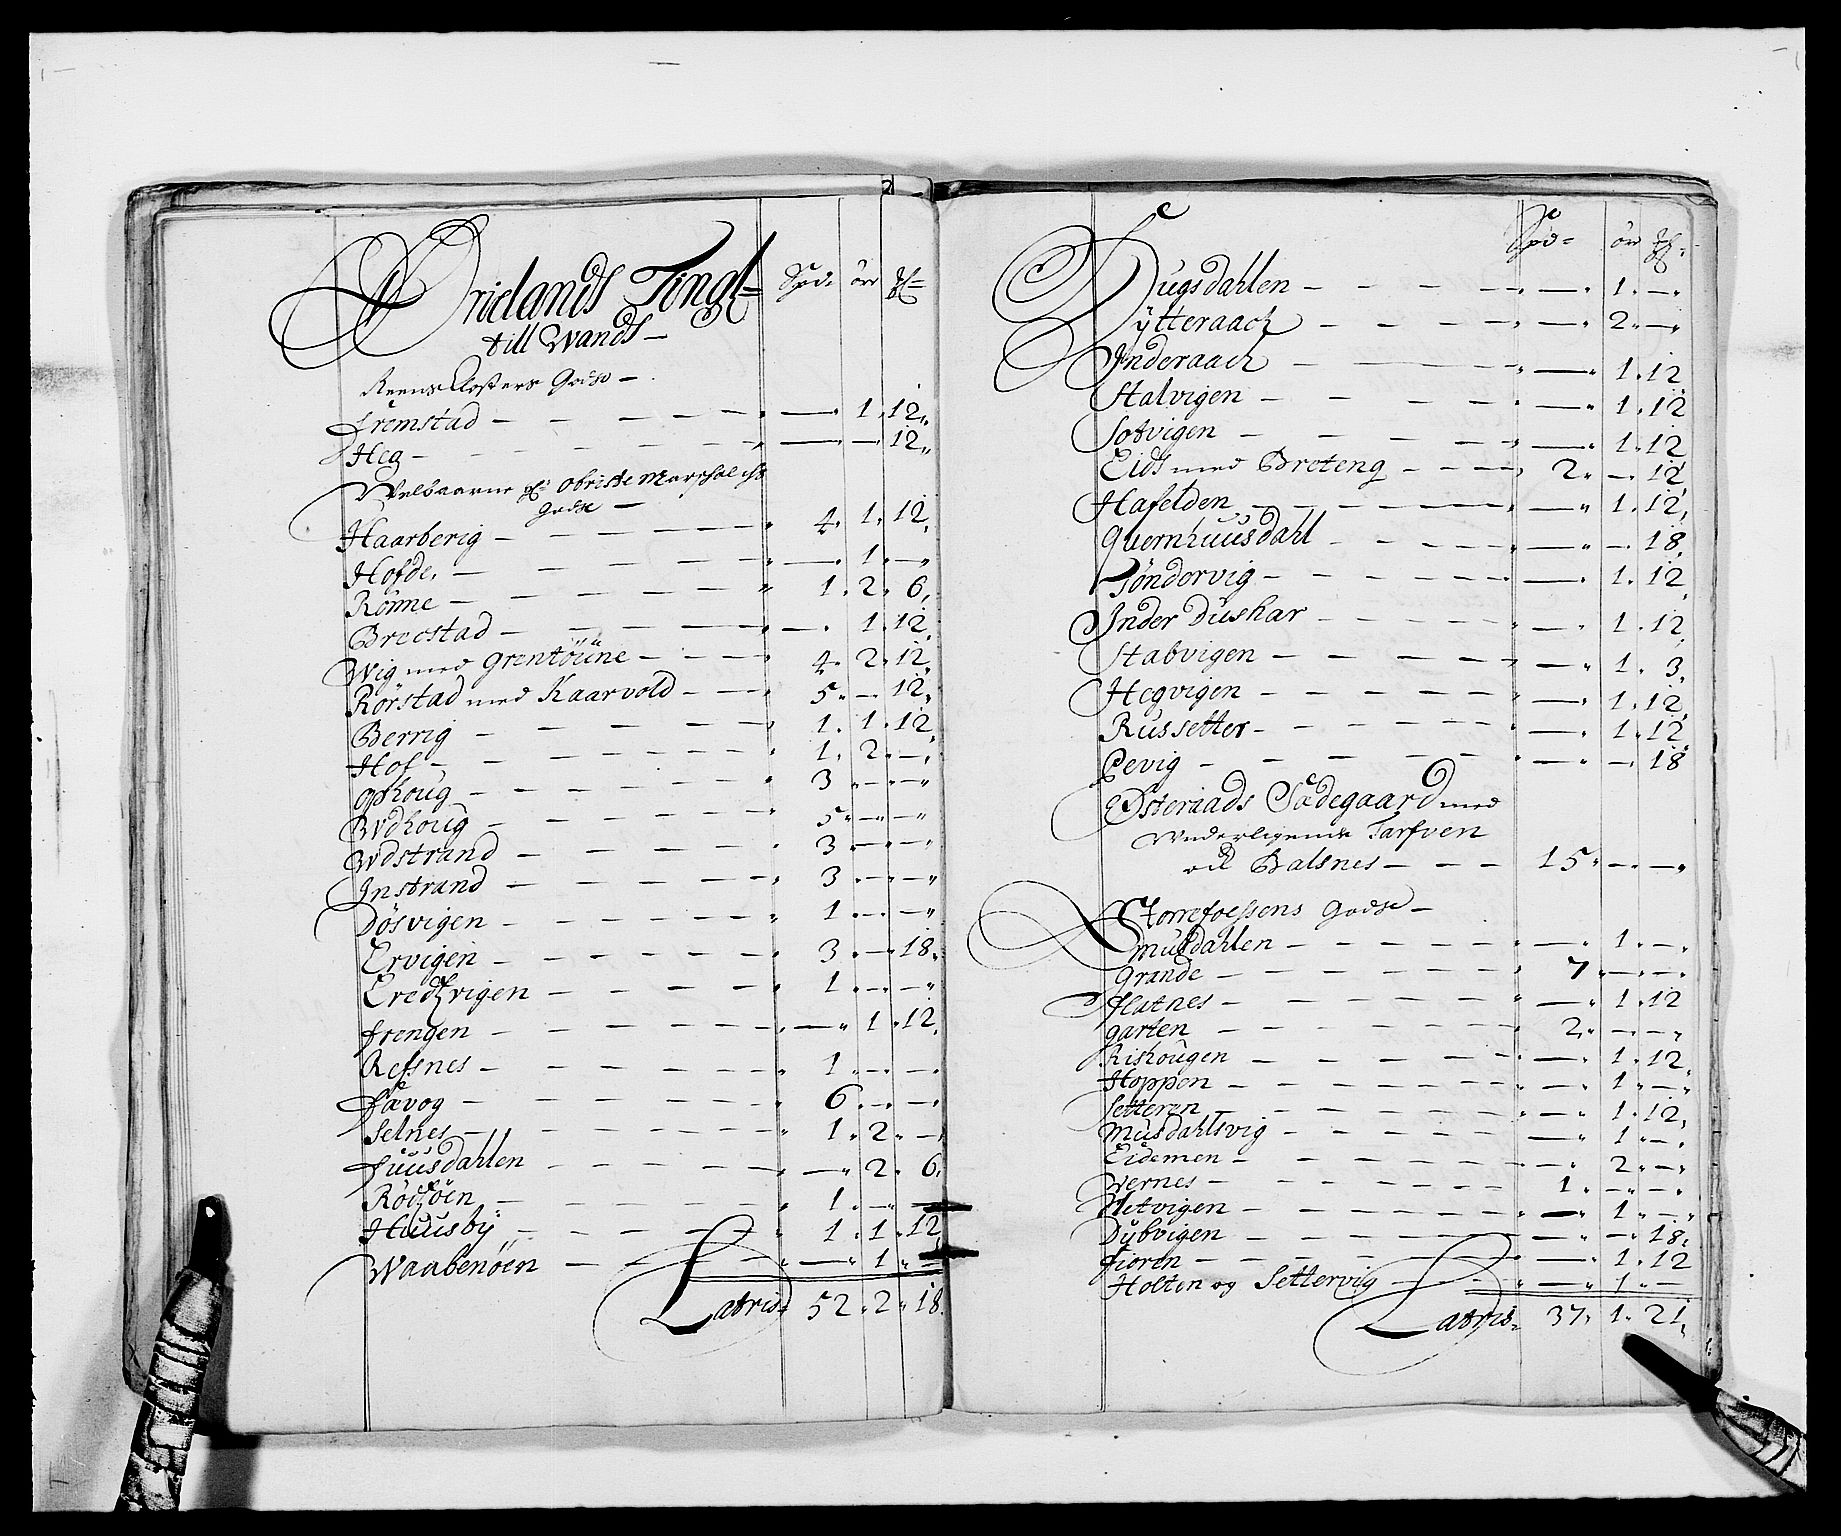 2
Ørielands Tingl=
till Wands –
Spd: ört ℔=
Reens Closters Godse –
Fremstad – – – – – – 1. 12.
Heg – – – – – – – 12.
Welbaarne Hr: Obriste Marschalchs
Godse –
Haarberig – – – – – 4. 1. 12.
Hofde. – – – – – – 1. –
Rönne – – – – – 1. 2. 6.
Brecstad – – – – – – 1. 12.
Wig med Grentöüne – – – 4. 2. 12.
Rörstad med Kaarvold – – – 5. – 12.
Berrig – – – – – 1. 1. 12.
Hof – – – – – 1. 2. –
Ophoug – – – – – 3. – –
Wdhoug – – – – – 5. – –
Wdstrand – – – – – 3. – –
Instrand – – – – – 3. – –
Dösvigen – – – – – 1. – –
Ervigen – – – – – 3. – 18.
Eredzvigen – – – – – 1. – –
Frengen – – – – – – 1. 12.
Refsnes – – – – – 1. – –
Favog – – – – – 6. – –
Selnes – – – – – 1. 2. –
Fuusdahlen – – – – – – 2. 6.
Rödzöen – – – – – 1. – –
Huusby – – – – – 1. 1. 12.
Waabenöen – – – – – – 1. –
Latris: 52. 2. 18.
Spd= ört ℔=
Dugsdahlen – – – – – 1. –
Ÿtteraach – – – – – 2. –
Inderaach – – – – 1. 12
Stalvigen – – – – – 1. 12
Sotvigen – – – – – 1. 12
Eids med Breteng – – – 2. – 12
Hafelden – – – – – 1. 12.
Quernhuusdahl – – – – – – 18.
Söndervig – – – – – – 1. 12.
Inder Dushar – – – – – 1. 12.
Stabvigen – – – – – 1. 3.
Hegvigen – – – – – 1. 12.
Russetter – – – – – 1. 12.
Pevig – – – – – – 18
Østeraads Sædegaard med
Underligende Tarfven
och Balsnes – – – 15. – –
Storrefoessens Godse –
Musdahlen – – – – – 1. –
Grande – – – – – 7. – –
Flatnes – – – – – 1. 12
Garten – – – – – 2. – –
Rishougen – – – – – 1. 12.
Hoppen – – – – – 1. –
Setteren – – – – – 1. 12.
Musdahlsvig – – – – – 1. –
Eidemen – – – – – 2. –
Wernes – – – – – 1. – –
Netvigen – – – – – 1. –
Dÿbvigen – – – – – – 18.
Fioren – – – – – 1. 12
Holten og Settervig – – – 1. –
Latris: 37. 1. 21.